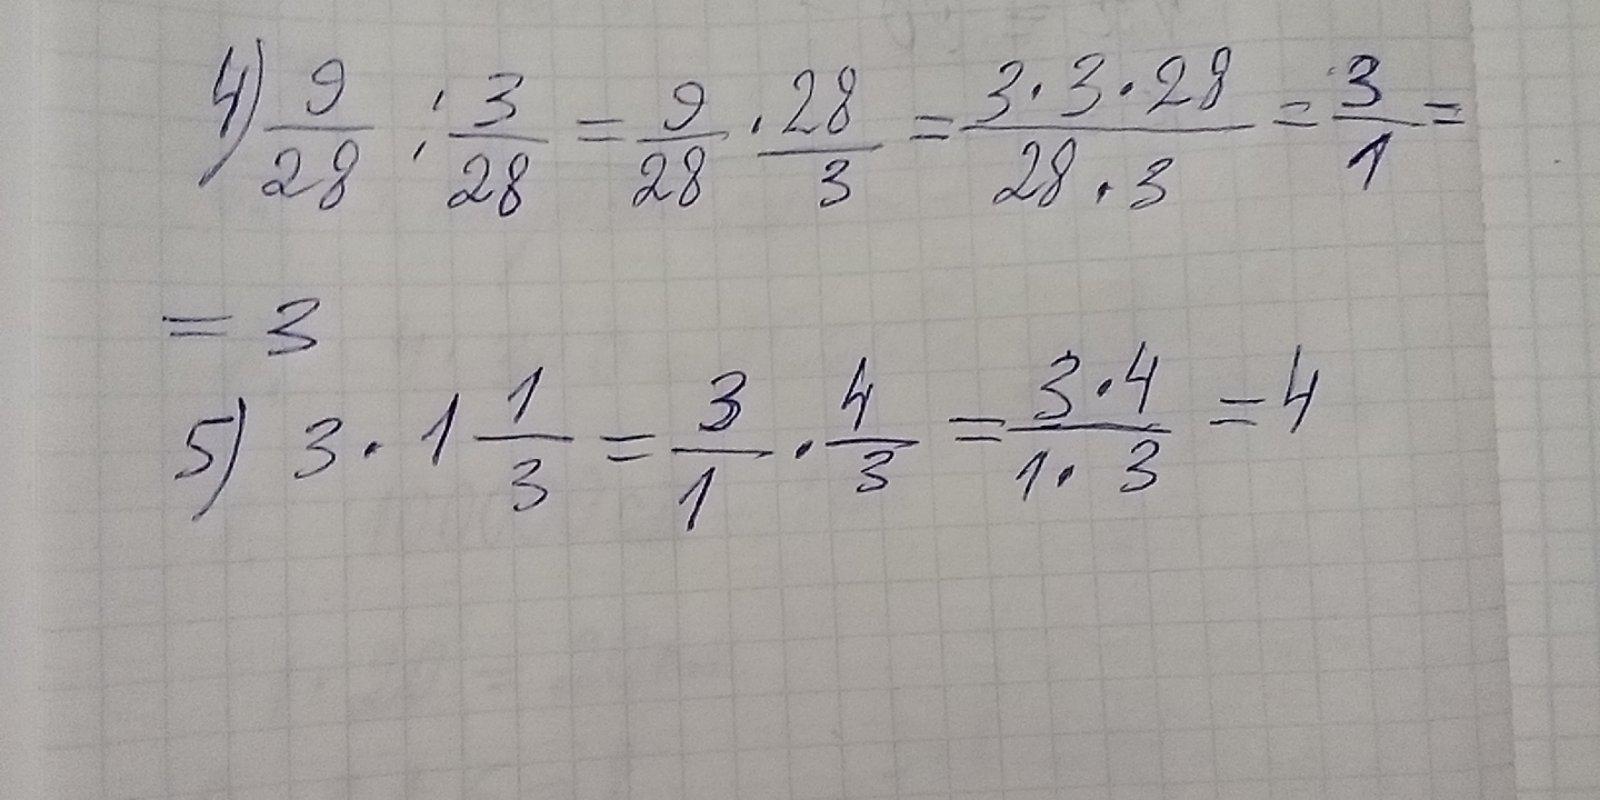 4) 9/28 : 3/28 = 9/28 · 28/3 = 3·3·28/28·3 = 3/1 =
= 3
5) 3 · 1 1/3 = 3/1 · 4/3 = 3·4/1·3 = 4